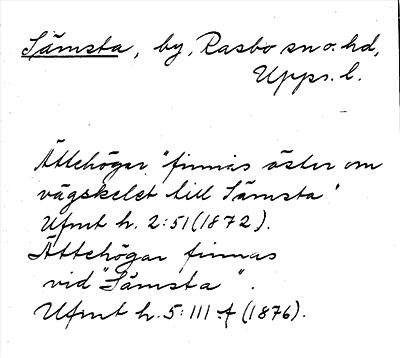 Sämsta, by, Rasbo sn o. hd,
Upps. l.
Ättehögar "finnas öster om
vägskelet till Sämsta"
Ufmt h. 2:51 (1872).
Ättehögar finnas
vid "Sämsta".
Ufmt h. 5:111 f (1876).